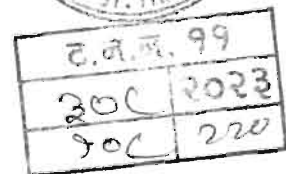 ट.न.न. ११
३०८ २०२३
१०८ २२०